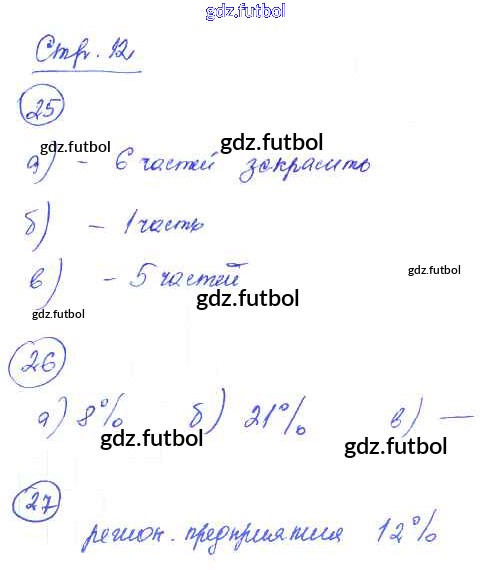 gdz.futbol
Стр. 12
25
gdz.futbol
gdz.futbol
а) - 6 частей закрасить
б) - 1 часть
в) - 5 частей
gdz.futbol
gdz.futbol
gdz.futbol
26
а) 8% б) 21% в) —
gdz.futbol
gdz.futbol
27
регион. предприятия 12%